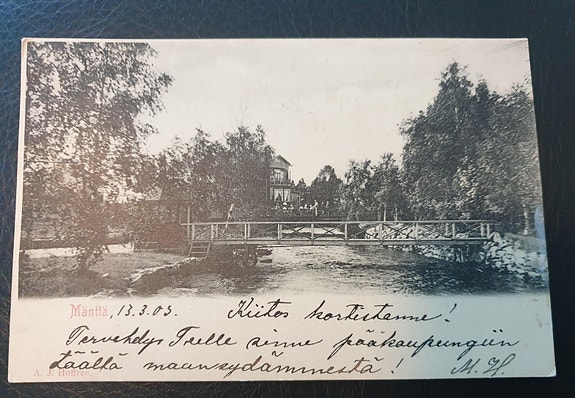 Mänttä, 13.3.03. Kiitos kortistanne!
Tervehdys Teille sinne pääkaupungiin
täältä maansydämmestä! M. H.
A. J. Hoffren.